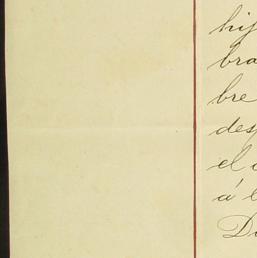 hij
bra
bre
des
el
á l
D